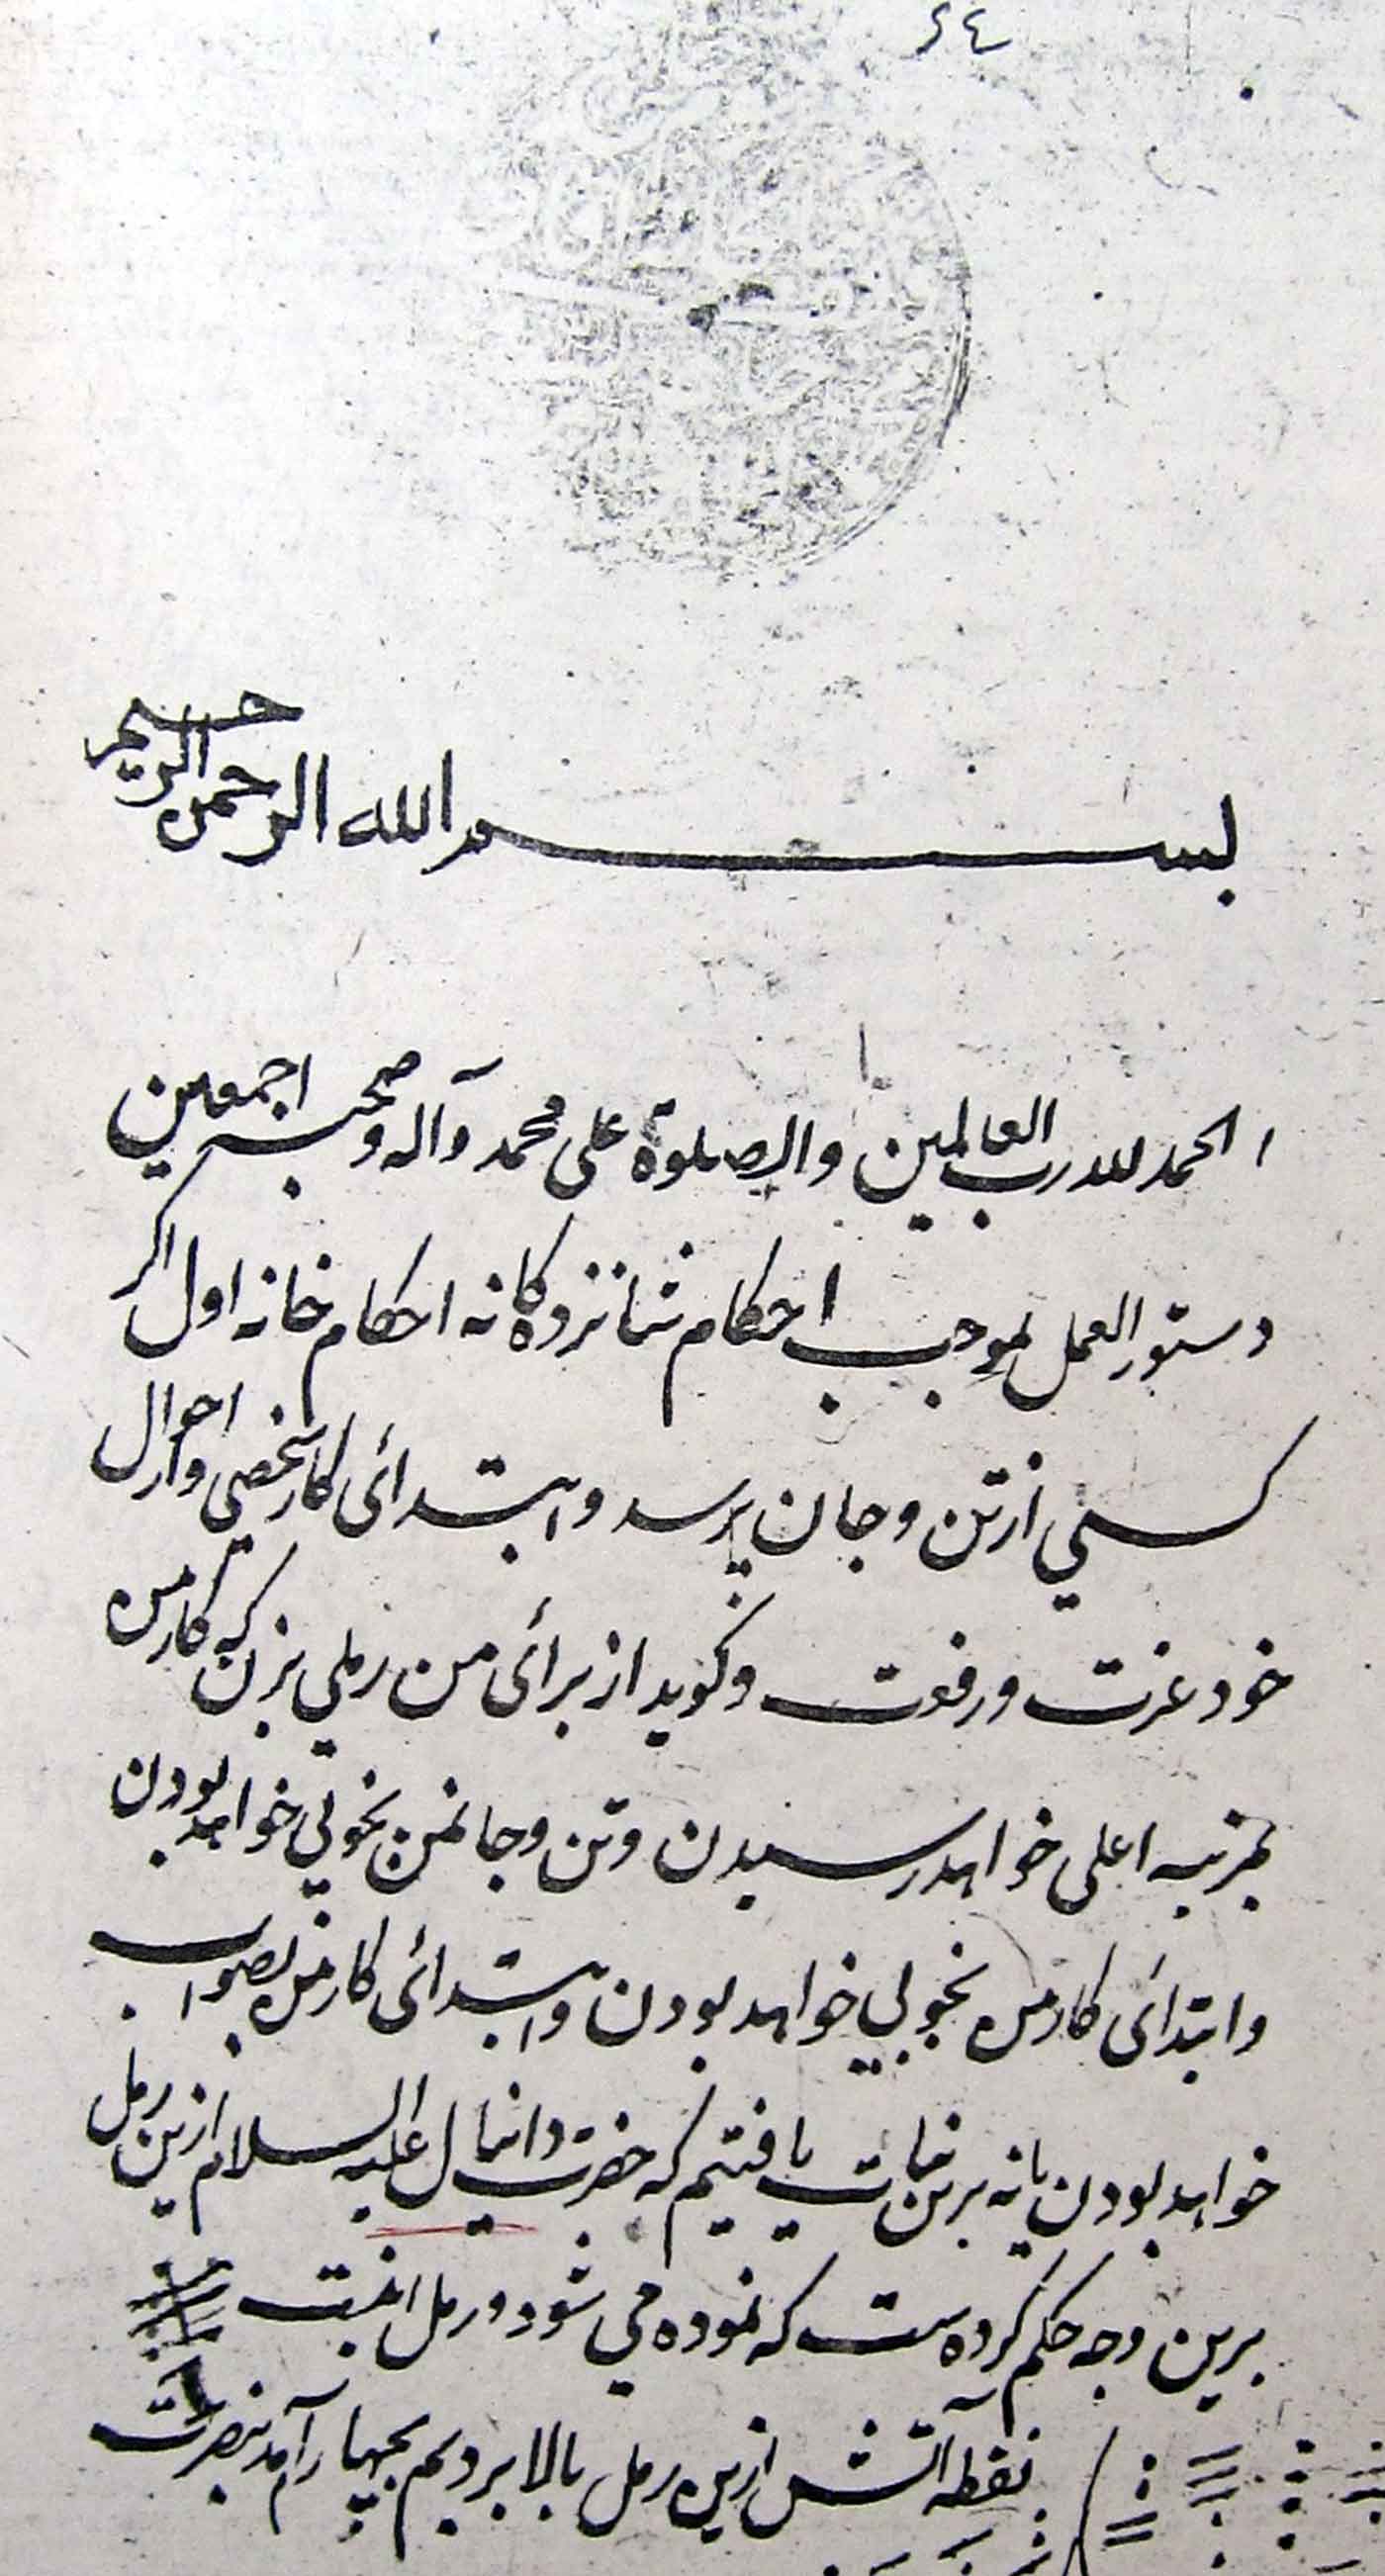 ٦٤
بسم الله الرحمن الرحیم
الحمد لله رب العالمین والصلوة علی محمد وآله وصحبه اجمعین
دستور العمل بموجب احکام شانزده کانه احکام خانه اول اکر
کسی از تن و جان پرسد و ابتدائی کار شخصی و احوال
خود عزت و رفعت و کوید از برائی من رملی بزن که کار من
بمرتبه اعلی خواهد رسیدن و تن و جانمن بخوبی خواهد بودن
و ابتدائی کار من بخوبی خواهد بودن و ابتدائی کار من بصواب
خواهد بودن یا نه برین یافتیم که حضرت دانیال علیه السلام ازین رمل
برین وجه حکم کرده ست که نموده می شود و رمل اینست
نقطه آتش ازین رمل بالا بردیم بچهار آمد